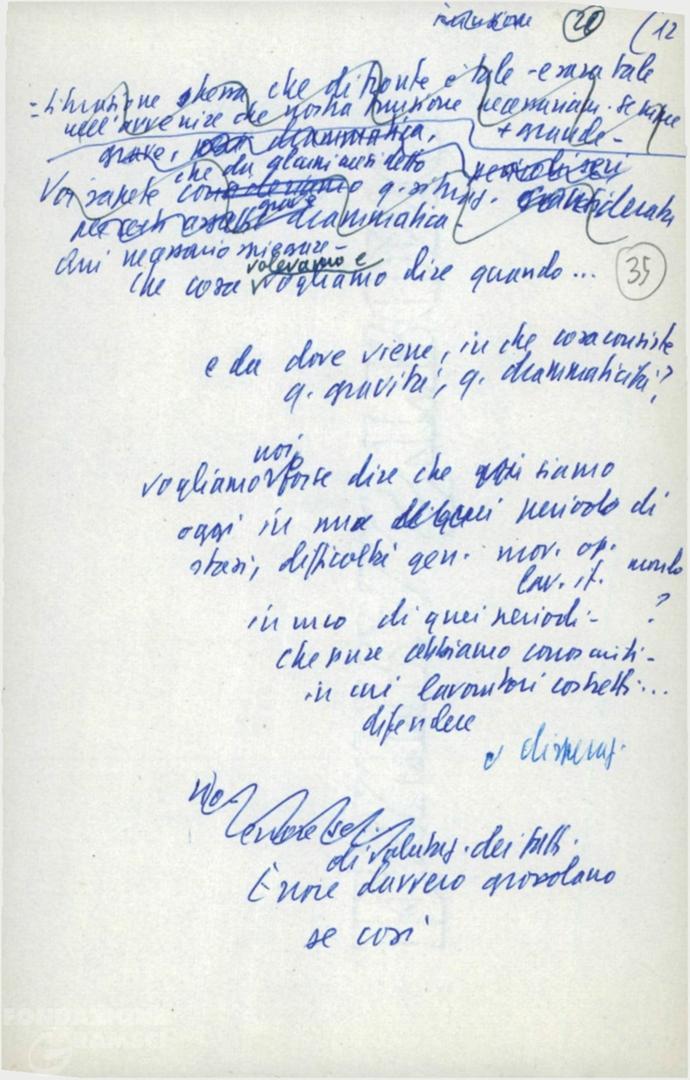 20 (12
= situazione stessa che di fronte è tale - e sarà tale
nell'avvenire che nostra funzione necessariam. sempre
+ grande -
grave, drammatica,
che da gli anni
Voi sapete consideriamo q. situaz. considerata
grave
drammatica -
Qui necessario
volevamo e
che cosa vogliamo dire quando... 35
e da dove viene, in che cosa consiste
q. gravità, q. drammaticità?
noi
vogliamo forse dire che qui siamo
oggi in uno di quei periodo di
stasi, difficoltà gen. mov. op. mondo
lav. it.
in uno di quei periodi - ?
che pure abbiamo conosciuti -
in cui lavoratori costretti...
difendere
No
di valutaz. dei fatti.
Errore davvero grossolano
se così